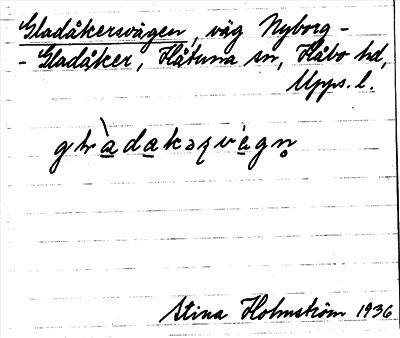 Gladåkersvägen, väg Nyborg -
- Gladåker, Håtuna sn, Håbo hd,
Upps. l.
Stina Holmström 1936